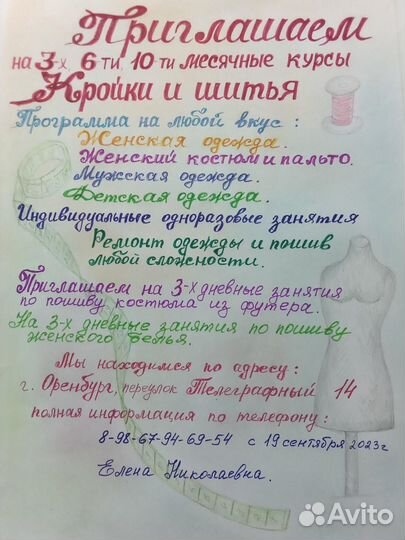 Приглашаем
на 3-х, 6-ти, 10-ти месячные курсы
Кройки и шитья
Программа на любой вкус:
Женская одежда.
Женский костюм и пальто.
Мужская одежда.
Детская одежда.
Индивидуальные одноразовые занятия
Ремонт одежды и пошив
любой сложности.
Приглашаем на 3-х дневные занятия
по пошиву костюма из футера.
На 3-х дневные занятия по пошиву
женского белья.
Мы находимся по адресу:
г. Оренбург, переулок Телеграфный 14
полная информация по телефону:
8-98-67-94-69-54 с 19 сентября 2023г
Елена Николаевна.
Avito